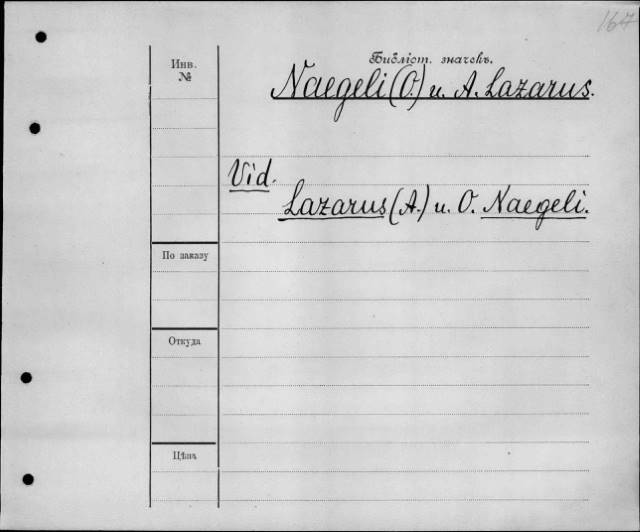 167
Инв.
№
Библіот. значекъ.
Naegeli (O.) u. A. Lazarus.
Vid.
Lazarus (A.) u. O. Naegeli.
По заказу
Откуда
Цѣна